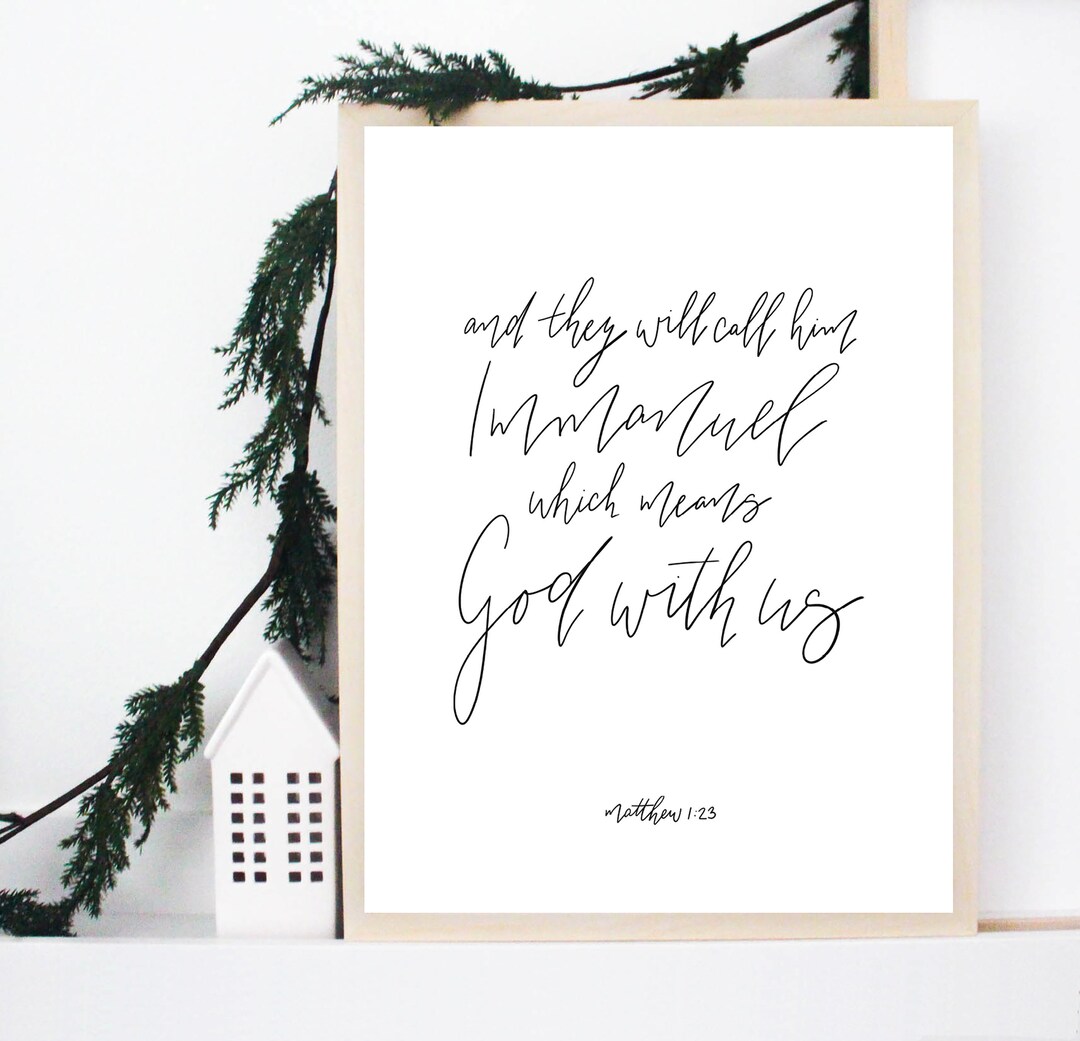 and they will call him
Immanuel
which means
God with us
matthew 1:23